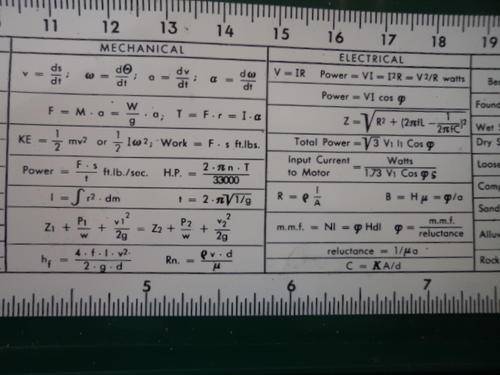 11 12 13 14 15 16 17 18 19
MECHANICAL
v = ds/dt; ω = dΘ/dt; a = dv/dt; α = dω/dt
F = M · a = W/g · a; T = F · r = I · α
KE = 1/2 mv² or 1/2 Iω²; Work = F · s ft.lbs.
Power = F · s/t ft.lb./soc. H.P. = 2 · π n · T/33000
I = ∫ r² · dm t = 2 · π√1/g
Z₁ + P₁/w + v₁²/2g = Z₂ + P₂/w + v₂²/2g
h_f = 4 · f · l · v²/2 · g · d Rn. = ϱ v · d/μ
ELECTRICAL
V = IR Power = VI = I²R = V²/R watts
Power = VI cos φ
Z = √R² + (2πfL − 1/2πfC)²
Total Power = √3 V₁ I₁ Cos φ
Input Current to Motor = Watts/1.73 V₁ Cos φ ς
R = ϱ l/A B = H μ = φ/a
m.m.f. = NI = φ Hdl φ = m.m.f./reluctance
reluctance = 1/μa
C = KA/d
Found
Wet S
Dry S
Loose
Comp
Sand
Alluv
Rock
5 6 7